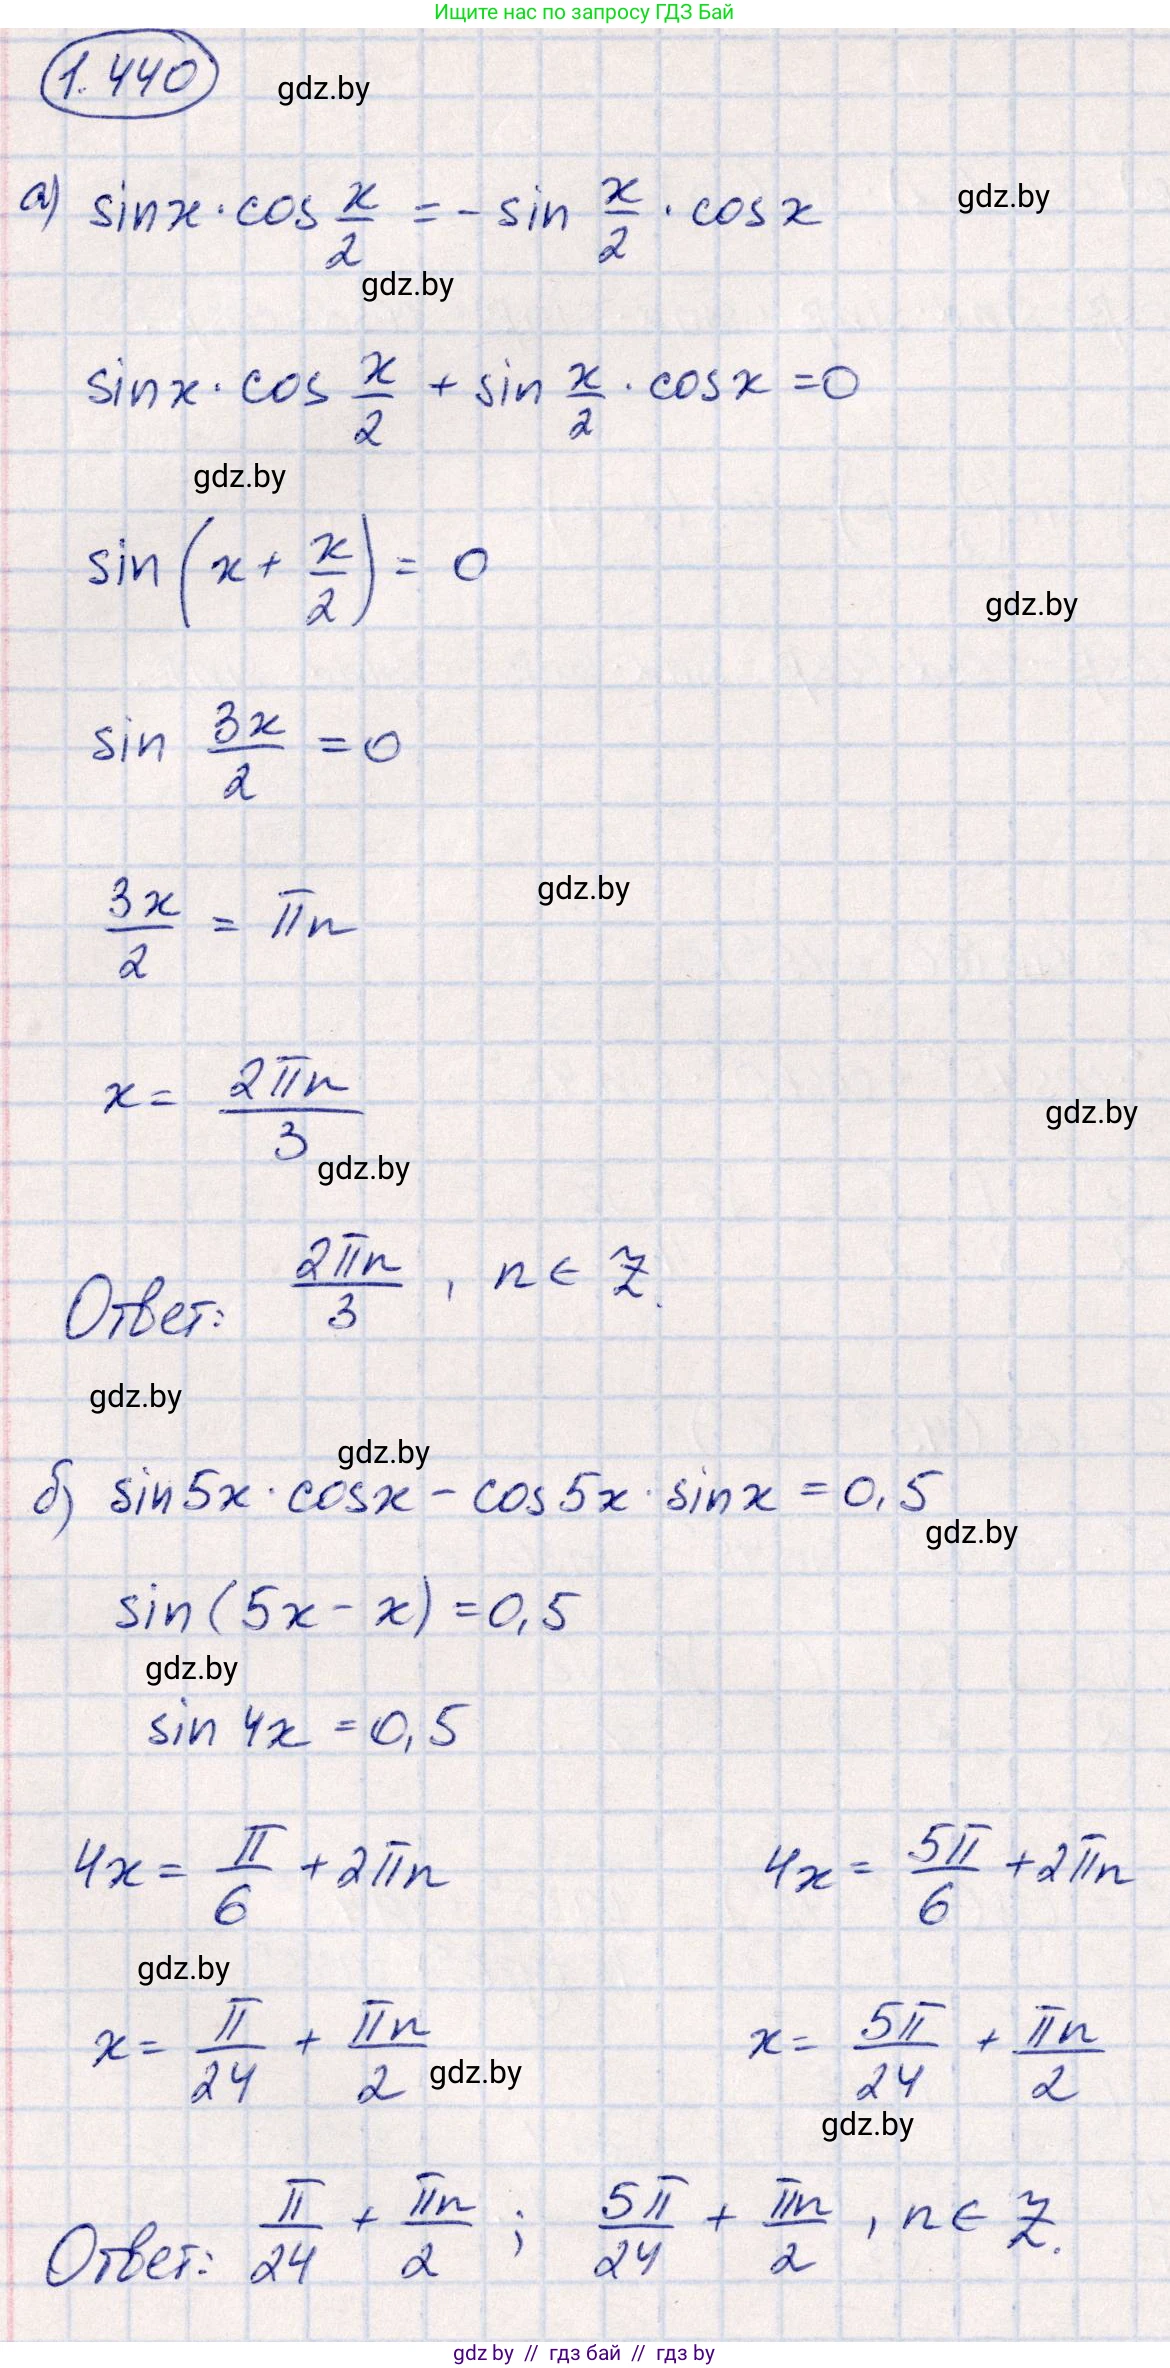 Ищите нас по запросу ГДЗ Бай
1.440
gdz.by
а) sinx · cos x/2 = - sin x/2 · cosx
gdz.by
gdz.by
sinx · cos x/2 + sin x/2 · cosx = 0
gdz.by
sin (x + x/2) = 0
gdz.by
sin 3x/2 = 0
gdz.by
3x/2 = πn
x = 2πn/3
gdz.by
gdz.by
Ответ: 2πn/3 , n ∈ Z.
gdz.by
gdz.by
б) sin5x · cosx - cos5x · sinx = 0,5
gdz.by
sin(5x - x) = 0,5
gdz.by
sin 4x = 0,5
4x = π/6 + 2πn 4x = 5π/6 + 2πn
gdz.by
x = π/24 + πn/2 x = 5π/24 + πn/2
gdz.by
gdz.by
Ответ: π/24 + πn/2 ; 5π/24 + πn/2 , n ∈ Z.
gdz.by // гдз бай // гдз by